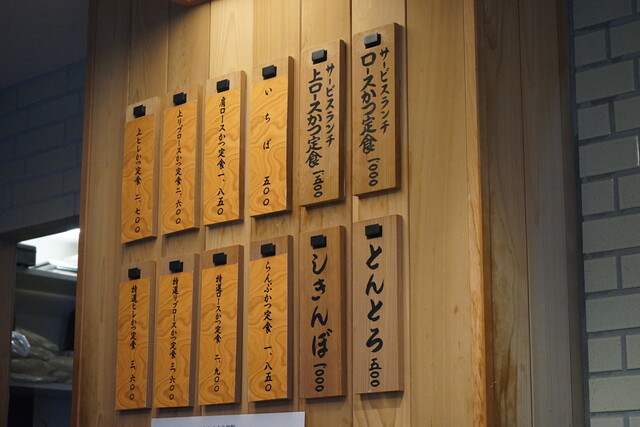 サービスランチ
ロースかつ定食 一〇〇〇
サービスランチ
上ロースかつ定食 一五〇〇
いちぼ 五〇〇
肩ロースかつ定食 一、八五〇
上リブロースかつ定食 二、六〇〇
上ヒレかつ定食 二、七〇〇
とんとろ 五〇〇
しきんぼ 一〇〇〇
らんぷかつ定食 一、八五〇
特選ロースかつ定食 二、九〇〇
特選リブロースかつ定食 三、六〇〇
特選ヒレかつ定食 三、六〇〇